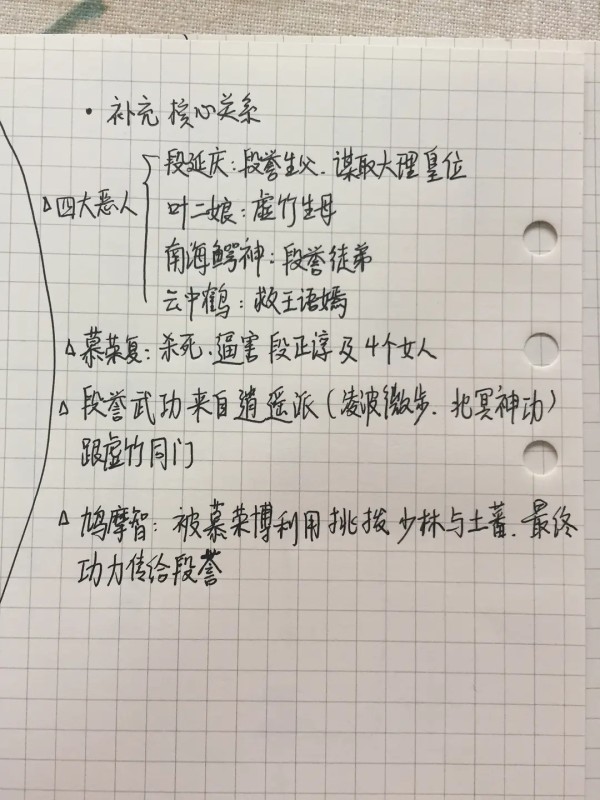 • 补充 核心关系
段延庆：段誉生父．谋取大理皇位
△四大恶人
叶二娘：虚竹生母
南海鳄神：段誉徒弟
云中鹤：救王语嫣
△慕荣复：杀死．逼害段正淳及4个女人
△ 段誉武功来自逍遥派（凌波微步．北冥神功）
跟虚竹同门
△ 鸠摩智：被慕荣博利用挑拨少林与土蕃．最终
功力传给段誉